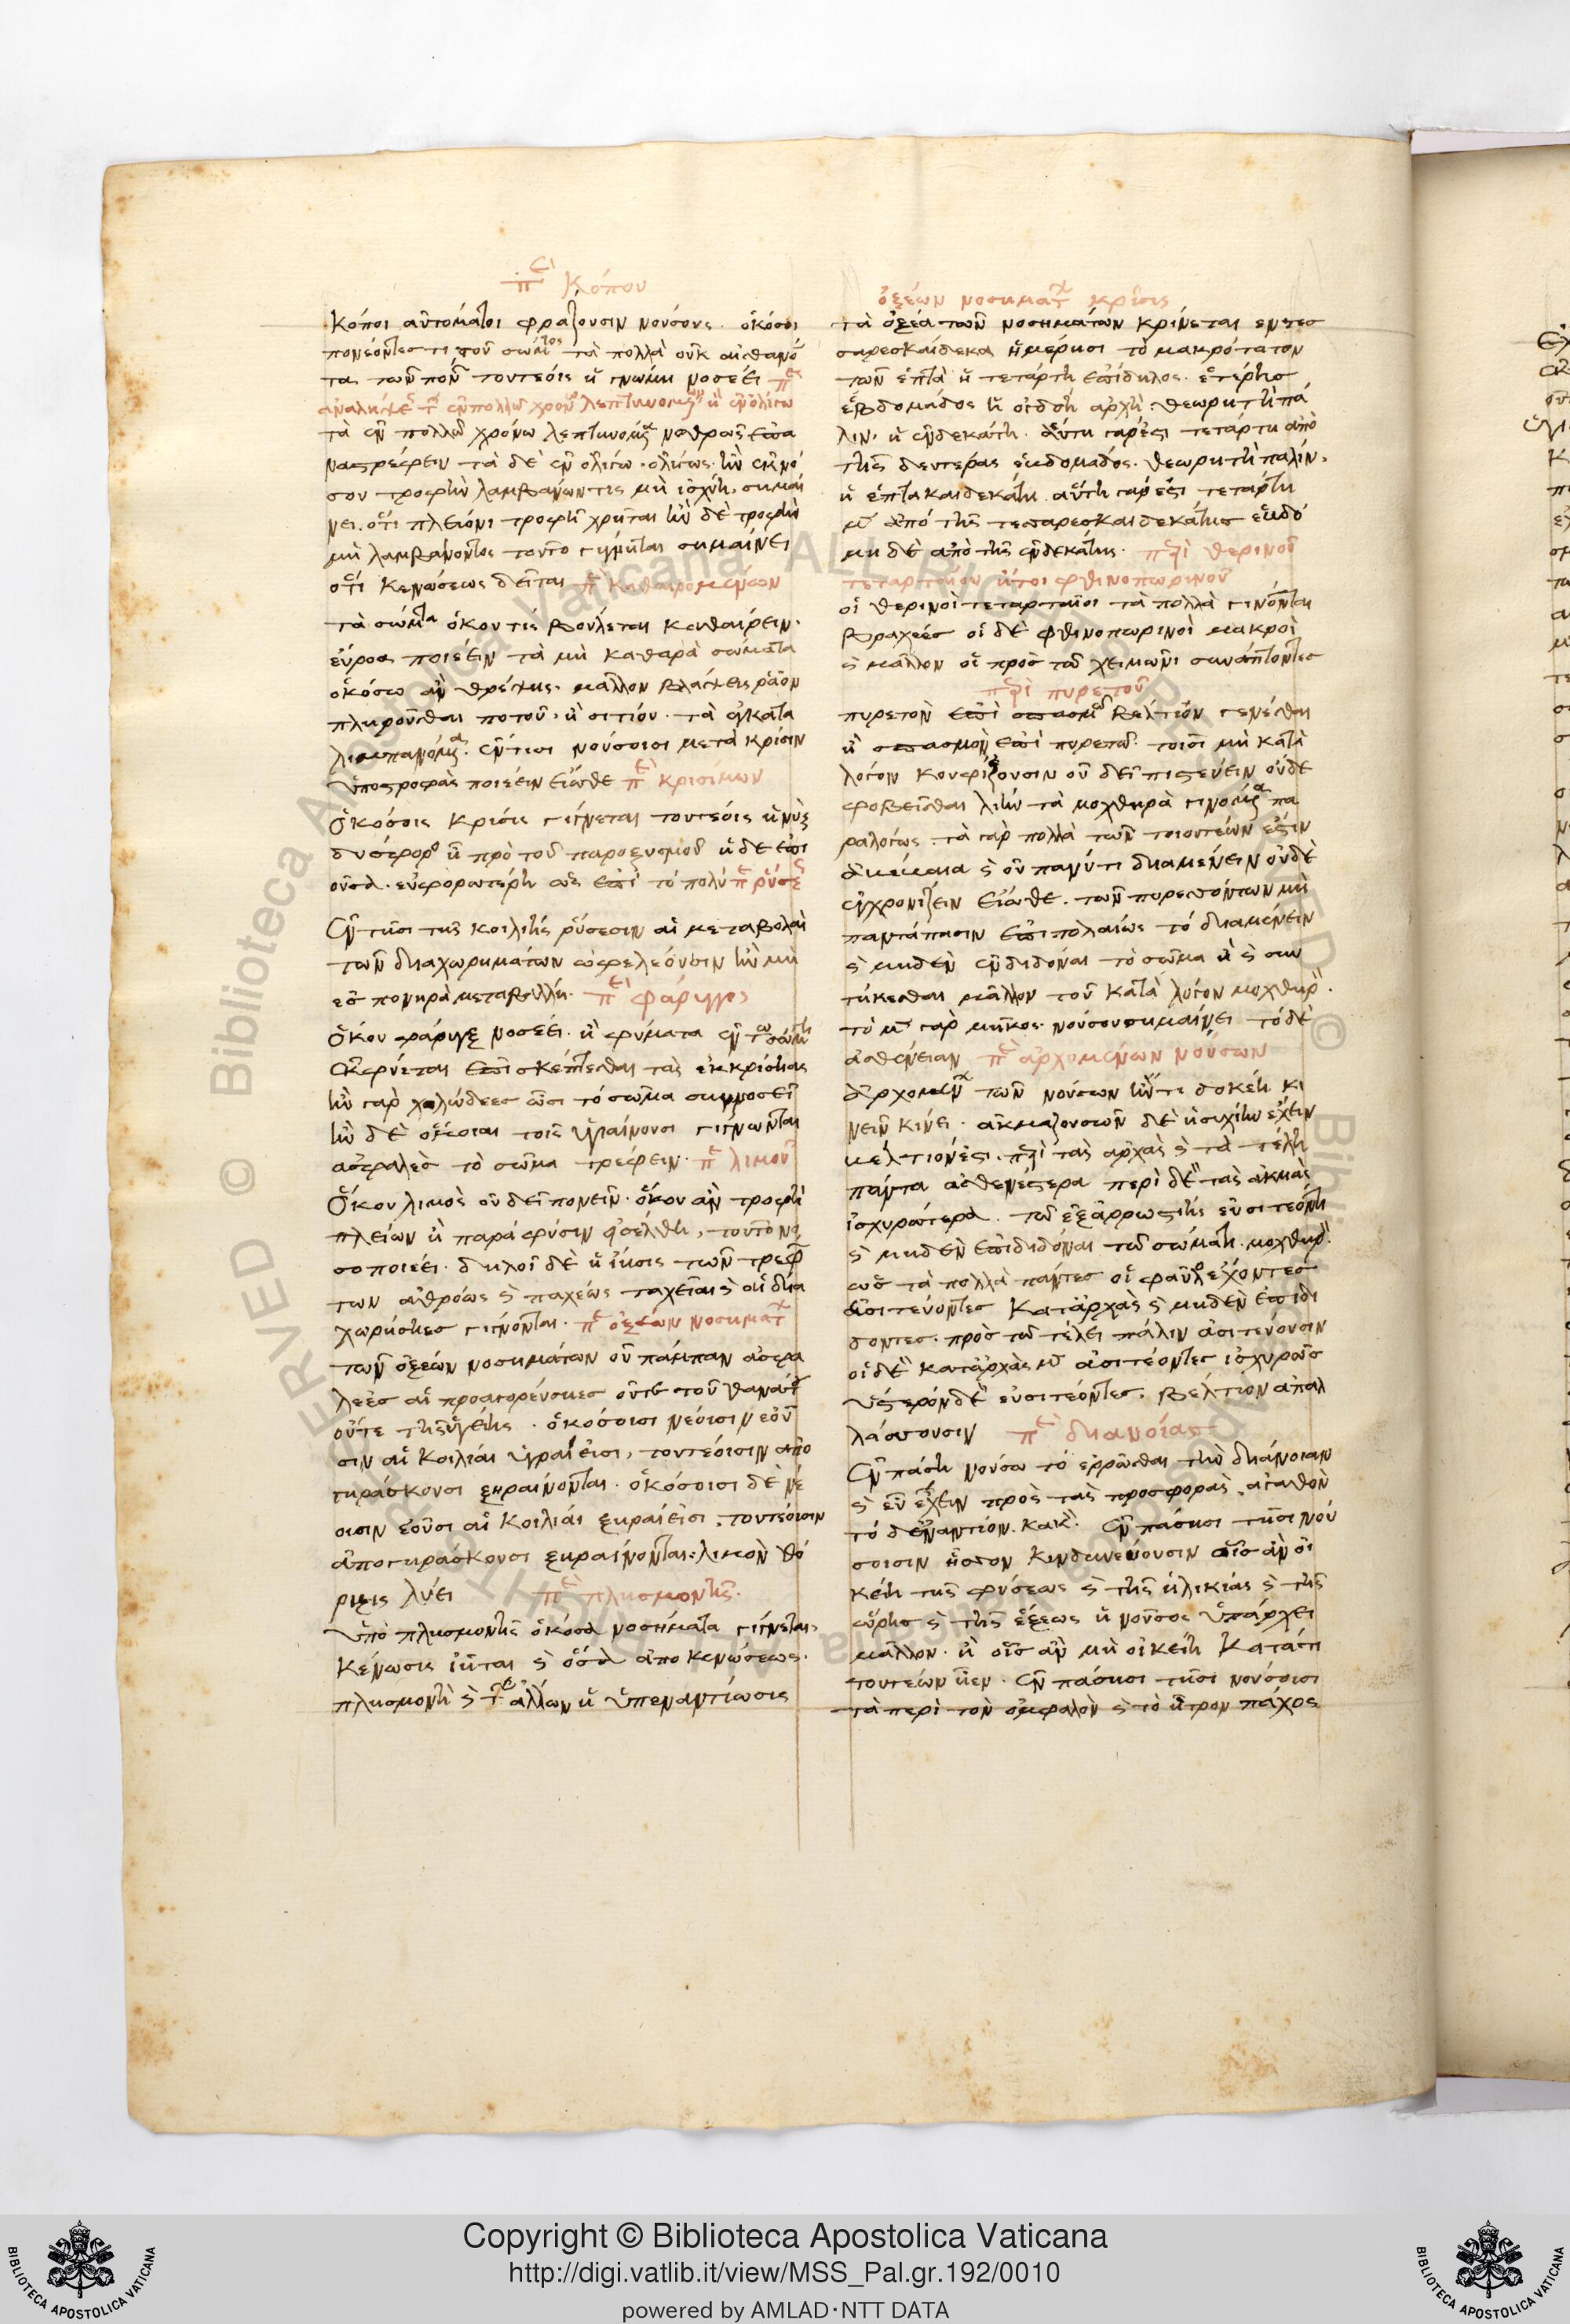 πε Κόπου
Κόποι αὐτόματοι φράζουσιν νούσους. ὁκόσοι
πονέοντές τι τοῦ σώματος τὰ πολλὰ οὐκ αἰσθάνο
ται τῶν πόνων τουτέοις ἡ γνώμη νοσέει
τὰ ἐν πολλῷ χρόνω λεπτυνόμενα νωθρῶς ἐπα
ναστρέφειν τὰ δὲ ἐν ὀλίγω. ὀλίγως. ἢν ἐκ νό
σου τροφὴν λαμβάνων τις μὴ ἰσχύη. σημαί
νει. ὅτι πλείονι τροφῆ χρῆται ἢν δὲ τροφὴν
μὴ λαμβάνοντος τοῦτο γίγνηται σημαίνει
ὅτι κενώσεως δεῖται πε καθαιρομένων
τὰ σώματα ὅκου τις βούλεται καθαίρειν.
εὔροα ποιέειν τὰ μὴ καθαρὰ σώματα
ὁκόσω ἂν θρέψης. μᾶλλον βλάψεις ῥᾶον
πληροῦσθαι ποτοῦ. ἢ σιτίου. τὰ ἐγκατα
λιμπανόμενα. ἐν τῆσι νούσοισι μετὰ κρίσιν
ὑποστροφὰς ποιέειν εἴωθε πε κρισίμων
Ὁκόσοις κρίσις γίγνεται τουτέοις ἡ νὺξ
δύσφορος ἡ πρὸ τοῦ παροξυσμοῦ ἡ δε ἐπι
οῦσα. εὐφορωτέρη ὡς ἐπὶ τὸ πολύ πε ῥύσεως
Ἐν τῆσι τῆς κοιλίης ῥύσεσιν αἱ μεταβολαὶ
τῶν διαχωρημάτων ὠφελέουσιν ἢν μὴ
ἐς πονηρὰ μεταβάλλη. πε φάρυγγος
Ὅκου φάρυγξ νοσέει. ἢ φύματα ἐν τῷ σώματι
ἐκφύεται ἐπισκέπτεσθαι τὰς ἐκκρίσιας
ἢν γὰρ χολώδεες ὦσι τὸ σῶμα συννοσεῖ
ἢν δὲ ὁμοίαι τοῖς ὑγιαίνουσι γίγνωνται
ἀσφαλὲς τὸ σῶμα τρέφειν. πε λιμοῦ
Ὅκου λιμὸς οὐ δεῖ πονεῖν. ὅκου ἂν τροφὴ
πλείων ἢ παρὰ φύσιν ἐσέλθη, τοῦτο νό
σον ποιέει. δηλοῖ δὲ ἡ ἴησις τῶν τρεφόν
των ἀθρόως καὶ παχέως ταχεῖαι καὶ αἱ δια
χωρήσιες γίγνονται. πε ὀξέων νοσημάτων
τῶν ὀξέων νοσημάτων οὐ πάμπαν ἀσφα
λέες αἱ προαγορεύσιες οὔτε τοῦ θανάτου
οὔτε τῆς ὑγείης. ὁκόσοισι νέοισιν ἐοῦ
σιν αἱ κοιλίαι ὑγραί εἰσι, τουτέοισιν ἀπο
γηράσκουσι ξηραίνονται. ὁκόσοισι δὲ νέ
οισιν ἐοῦσι αἱ κοιλίαι ξηραί εἰσι. τουτέοισιν
ἀπογηράσκουσι ξηραίνονται: λιμὸν θώ
ρηξις λύει πε πλησμονῆς.
Ὑπὸ πλησμονῆς ὁκόσα νοσήματα γίγνεται,
κένωσις ἰῆται καὶ ὅσα ἀπο κενώσεως.
πλησμονὴ καὶ τῶν ἄλλων ἡ ὑπεναντίωσις
ὀξέων νοσημάτων κρίσις
τὰ ὀξέα τῶν νοσημάτων κρίνεται εν τες
σαρεσκαίδεκα ἡμέρησι τὸ μακρότατον
τῶν ἑπτὰ ἡ τετάρτη ἐπίδηλος. ἑτέρης
ἑβδομάδος ἡ ὀγδόη ἀρχή. θεωρητὴ πά
λιν. ἡ ἐνδεκάτη. αὕτη γάρ ἐστι τετάρτη ἀπὸ
τῆς δευτέρας ἑβδομάδος. θεωρητὴ πάλιν.
ἡ ἑπτακαιδεκάτη. αὕτη γάρ ἐστι τετάρτη
μὲν ἀπό τῆς τεσσαρεσκαιδεκάτης ἑβδό
μη δὲ ἀπὸ τῆς ἐνδεκάτης. περὶ θερινοῦ
τεταρταίου ἤτοι φθινοπωρινοῦ
οἱ θερινοὶ τεταρταῖοι τὰ πολλὰ γίνονται
βραχέες οἱ δὲ φθινοπωρινοὶ μακροὶ
καὶ μᾶλλον οἱ πρὸς τῷ χειμῶνι συνάπτοντες
περὶ πυρετοῦ
πυρετὸν ἐπὶ σπασμῷ βέλτιον γενέσθαι
ἢ σπασμὸν ἐπὶ πυρετῷ. τοῖσι μὴ κατὰ
λόγον κουφίζουσιν οὐ δεῖ πιστεύειν οὐδὲ
φοβεῖσθαι λίην τὰ μοχθηρὰ γινόμενα πα
ραλόγως. τὰ γὰρ πολλὰ τῶν τοιουτέων ἐστὶν
ἀβέβαια καὶ οὐ πανύ τι διαμένειν οὐδὲ
ἐγχρονίζειν εἴωθε. τῶν πυρεσσόντων μὴ
παντάπασιν ἐπιπολαίως τὸ διαμένειν
καὶ μηδὲν ἐνδιδόναι τὸ σῶμα ἢ καὶ συν
τήκεσθαι μᾶλλον τοῦ κατὰ λόγον μοχθηρόν.
τὸ μὲν γὰρ μῆκος. νούσου σημαίνει τὸ δὲ
ἀσθένειαν πε ἀρχομένων νούσων
Ἀρχομένων τῶν νούσων ἤν τι δοκέη κι
νεῖν κίνει. ἀκμαζουσῶν δὲ ἡσυχίην ἔχειν
βέλτιόν ἐστι. περὶ τὰς ἀρχὰς καὶ τὰ τέλη
πάντα ἀσθενέστερα περὶ δὲ τὰς ἀκμὰς
ἰσχυρότερα. τῷ ἐξ ἀρρωστίης εὐσιτέοντι
καὶ μηδὲν ἐπιδιδόναι τῷ σώματι. μοχθηρόν.
ὡς τὰ πολλὰ πάντες οἱ φαύλως ἔχοντες
εὐσιτεῦντες κατἀρχὰς καὶ μηδὲν ἐπιδι
δόντες. πρὸς τῷ τέλει πάλιν ἀσιτέουσιν
οἱ δὲ κατἀρχὰς μὲν ἀσιτέοντες ἰσχυρῶς
ὕστερον δὲ εὐσιτέοντες. βέλτιον ἀπαλ
λάσσουσιν πε διανοίας
Ἐν πάση νούσω τὸ ἐρρῶσθαι τὴν διάνοιαν
καὶ εὖ ἔχειν πρὸς τὰς προσφορὰς. ἀγαθὸν
τὸ δ'ἐναντίον. κακὸν. ἐν πάσησι τῆσι νού
σοισιν ἧσσον κινδυνεύουσιν οἷς ἂν οἰ
κείη τῆς φύσεως καὶ τῆς ἡλικίας καὶ τῆς
ὥρης καὶ τῆς ἕξεως ἡ νοῦσος ὑπάρχει
μᾶλλον. ἢ οἷς ἂν μὴ οἰκείη κατά τι
τουτέων ἦεν. ἐν πάσησι τῆσι νούσοισι
τὰ περὶ τὸν ὀμφαλὸν καὶ τὸ ἦτρον πάχος
Copyright © Biblioteca Apostolica Vaticana
http://digi.vatlib.it/view/MSS_Pal.gr.192/0010
powered by AMLAD·NTT DATA